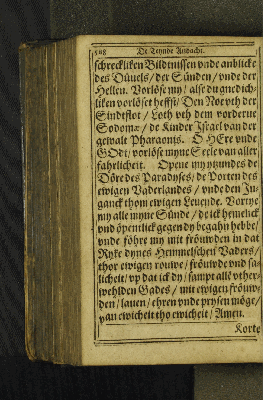 508 De Teynde Andacht.
schreckliken Bildtnissen vnde anblicke
des Düuels / der Sünden / vnde der
Hellen. Vorlöse my / alse du gnedich-
liken vorlöset heffst / Den Noe vth der
Sindeflot / Loth vth dem vorderue
Sodomæ / de Kinder Israel van der
gewalt Pharaonis. O HEre vnde
GOdt / vorlöse myne Seele van aller
fahrlicheit. Opene my nu des
Döre des Paradyses / de Porten des
ewigen Vaderlandes / vnde den In-
ganck thom ewigen Leuende. Vorgyff
my alle myne Sünde / de ick hemelick
vnd öpentlick gegen dy begahn hebbe /
vnde föhre my mit fröuwden in dat
Ryke dynes Hemmelschen Vaders /
thor ewigen rouwe / fröuwde vnd sa-
licheit / vp dat ick dy / sampt alle vther-
wehlden Gades / mit ewigen fröuw-
den / lauen / ehren vnde prysen möge /
van ewicheit tho ewicheit / Amen.
Korte